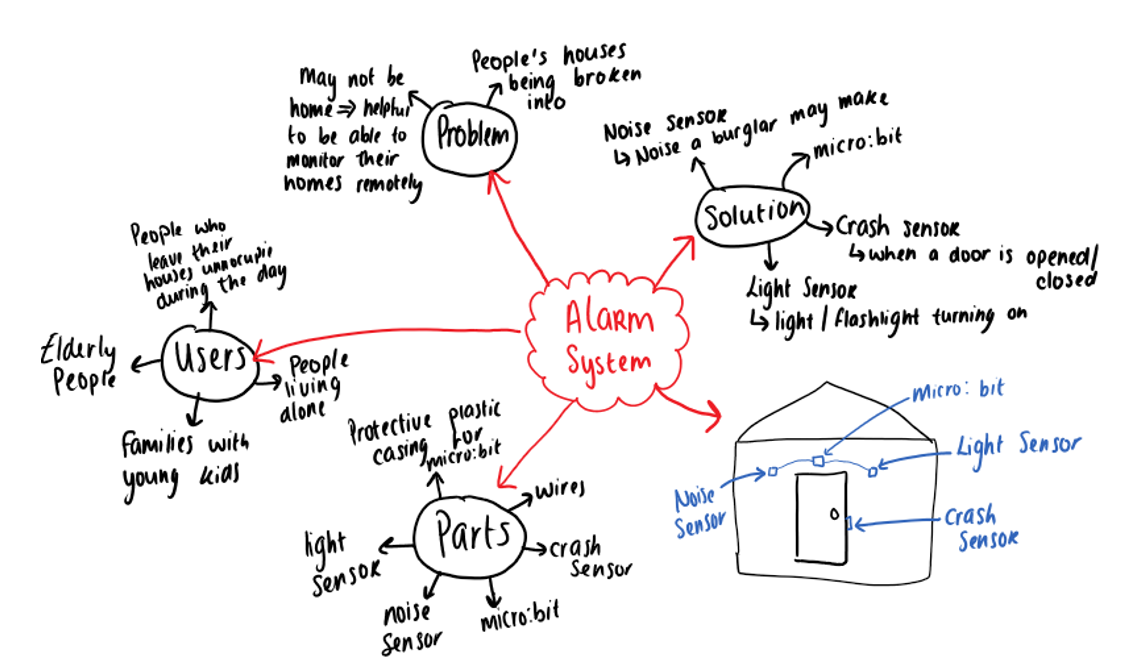 May not be
home => helpful
to be able to
monitor their
homes remotely
People's houses
being broken
into
Problem
Noise Sensor
↳ Noise a burglar may make
micro:bit
Solution
Crash sensor
↳ when a door is opened/
closed
Light Sensor
↳ light / flashlight turning on
People who
leave their
houses unnocupie
during the day
Users
Elderly
People
People
living
alone
families with
young kids
Alarm
System
Protective plastic
casing for
micro:bit
Parts
wires
crash
Sensor
light
Sensor
noise
Sensor
micro:bit
micro: bit
Light Sensor
Noise
Sensor
Crash
Sensor